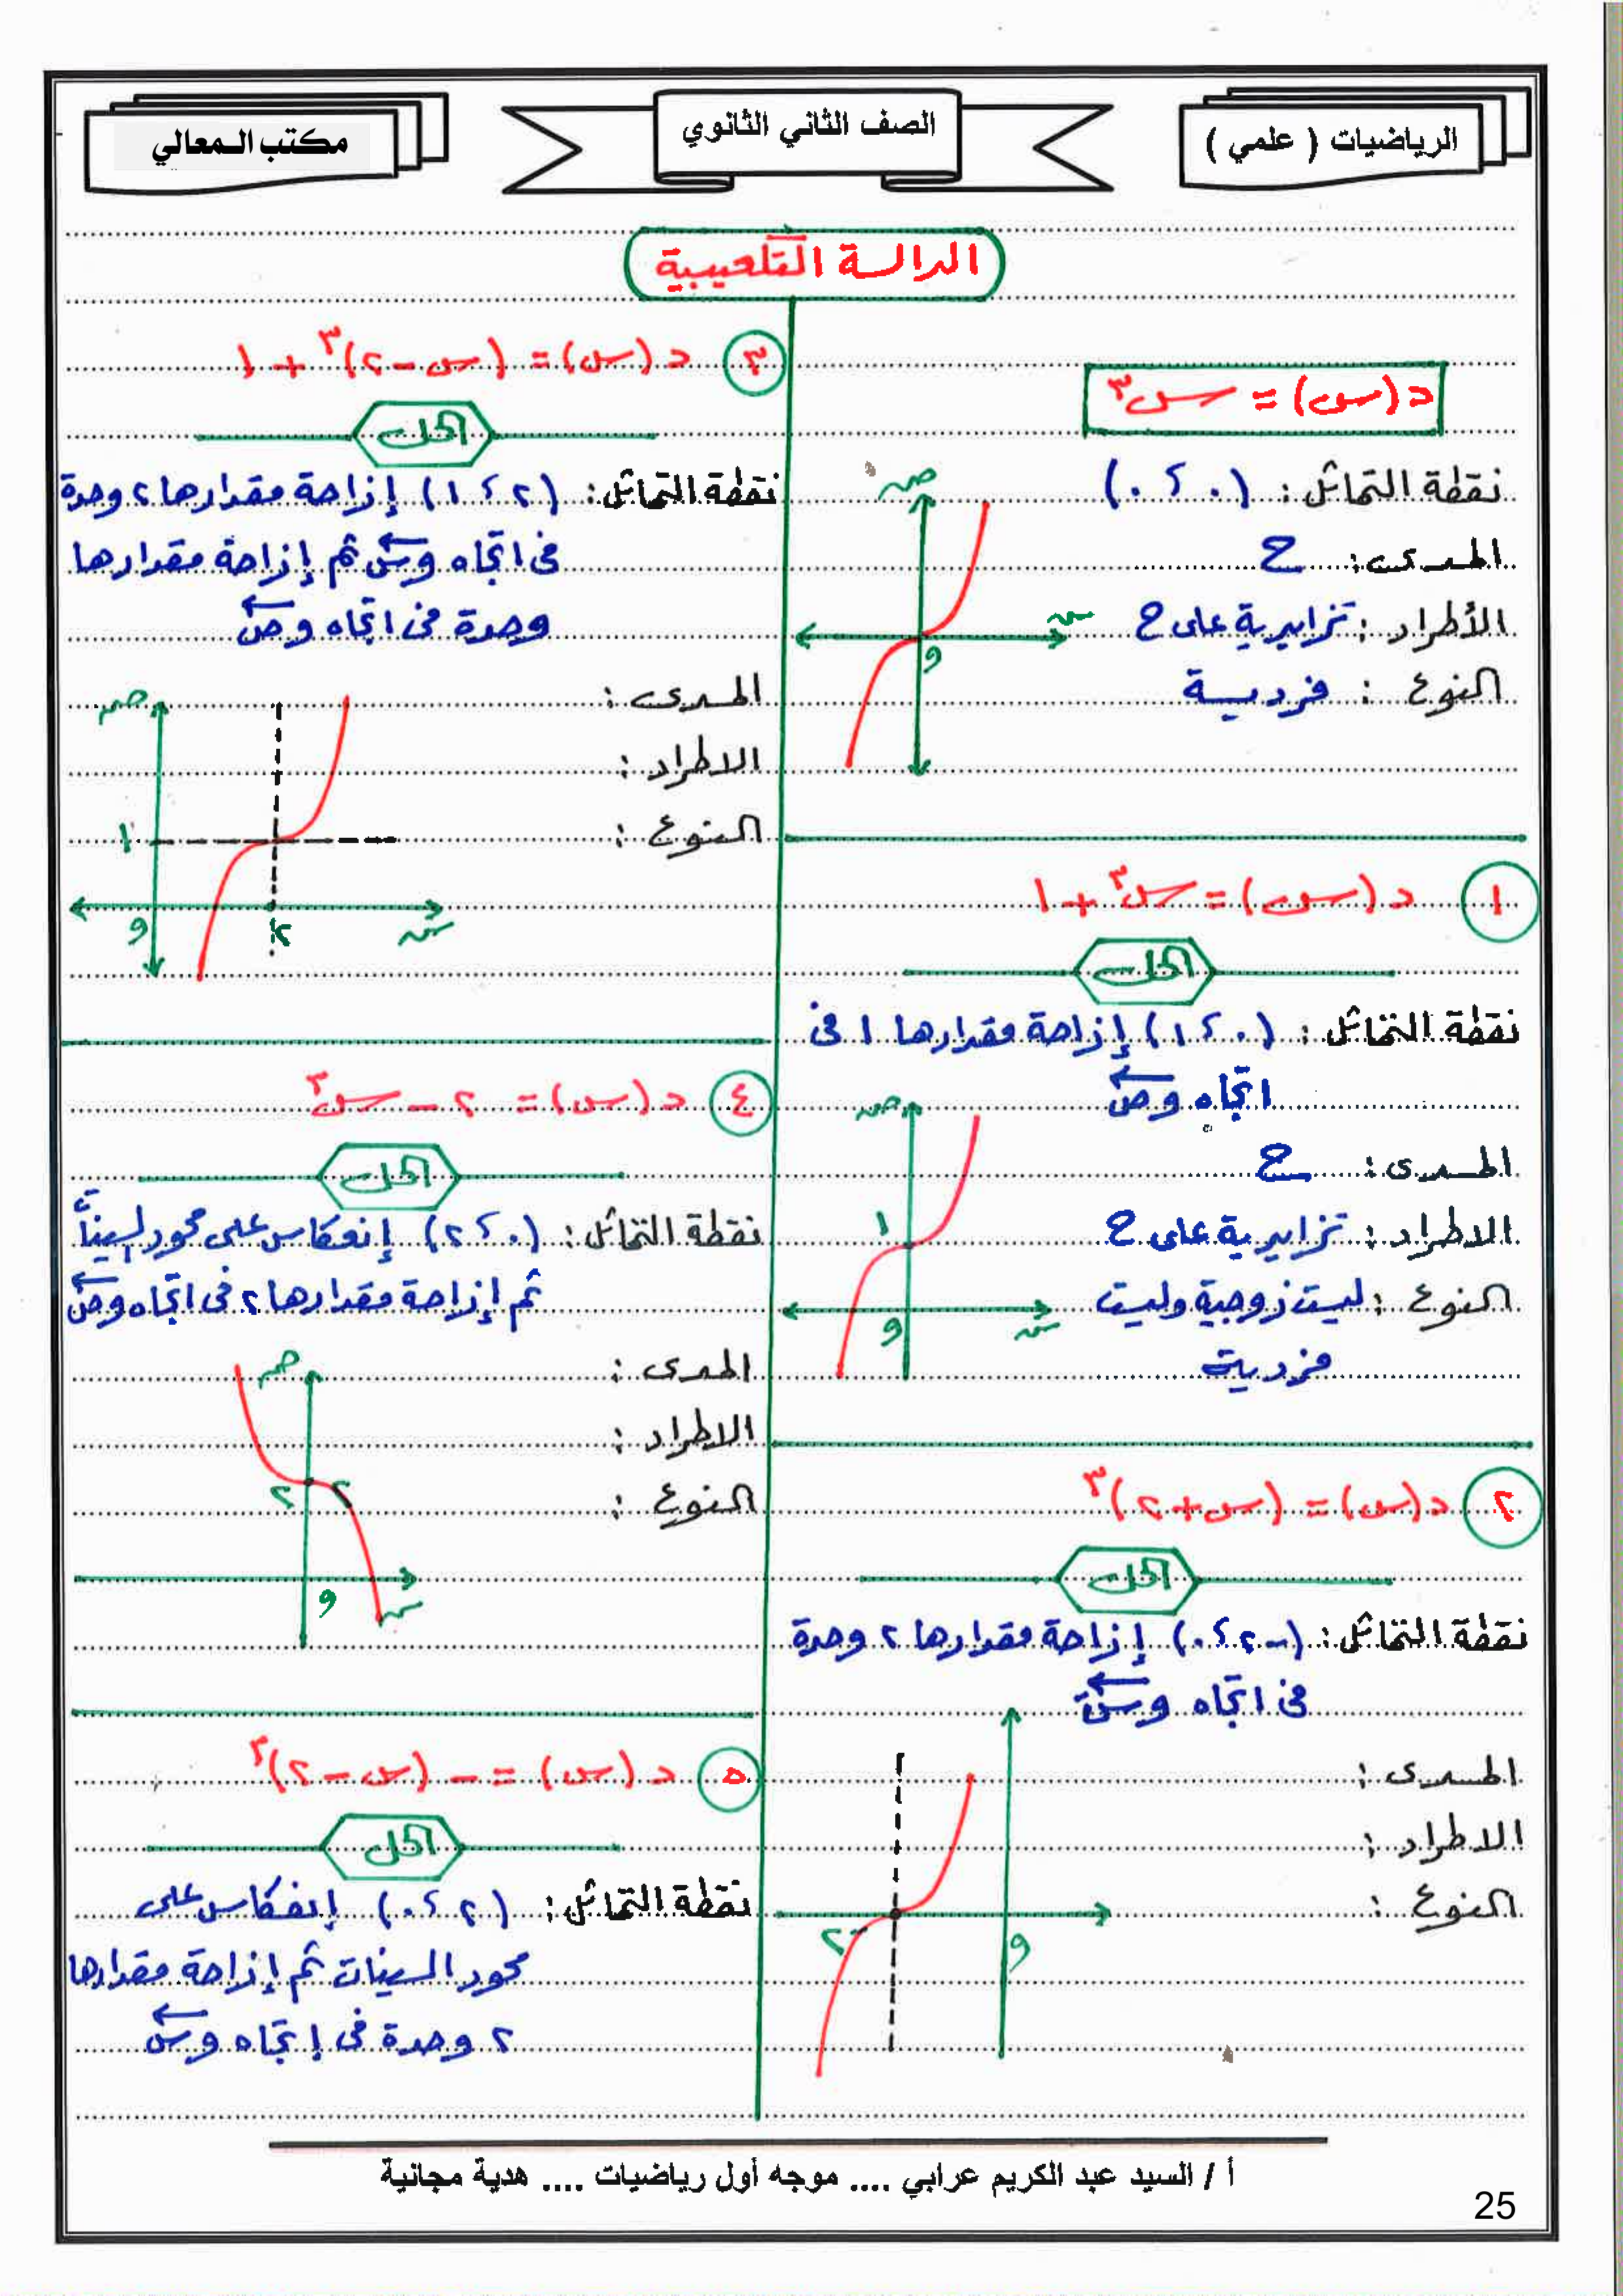 الرياضيات ( علمي )
الصف الثاني الثانوي
مكتب المعالي
الدالة التكعيبية
د(س) = س٣
نقطة التماثل : (٠ ، ٠)
المدى : ح
الأطراد : تزايدية على ح
النوع : فردية
ص
س
و
١ د(س) = س٣ + ١
الحل
نقطة التماثل : (٠ ، ١) إزاحة مقدارها ١ فى
اتجاه وص
المدى : ح
الاطراد : تزايدية على ح
النوع : ليست زوجية وليست
فردية
ص
١
س
و
٢ د(س) = (س + ٢)٣
الحل
نقطة التماثل : (-٢ ، ٠) إزاحة مقدارها ٢ وحدة
فى اتجاه وس
المدى :
الاطراد :
النوع :
-٢
و
٣ د(س) = (س - ٢)٣ + ١
الحل
نقطة التماثل : (٢ ، ١) إزاحة مقدارها ٢ وحدة
فى اتجاه وس ثم إزاحة مقدارها
وحدة فى اتجاه وص
المدى :
الاطراد :
النوع :
ص
١
و
٢
س
٤ د(س) = ٢ - س٣
الحل
نقطة التماثل : (٠ ، ٢) إنعكاس على محور السينات
ثم إزاحة مقدارها ٢ فى اتجاه وص
المدى :
الاطراد :
النوع :
ص
٢
و
س
٥ د(س) = - (س - ٢)٣
الحل
نقطة التماثل : (٢ ، ٠) إنعكاس على
محور السينات ثم إزاحة مقدارها
٢ وحدة فى إتجاه وس
أ / السيد عبد الكريم عرابي .... موجه أول رياضيات .... هدية مجانية
25